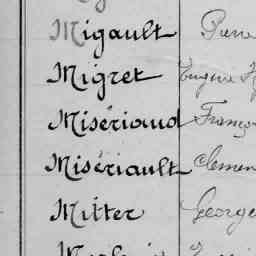 Migault Pierre
Migret Eugène
Misériaud Franço
Misériault Clemen
Mitter George